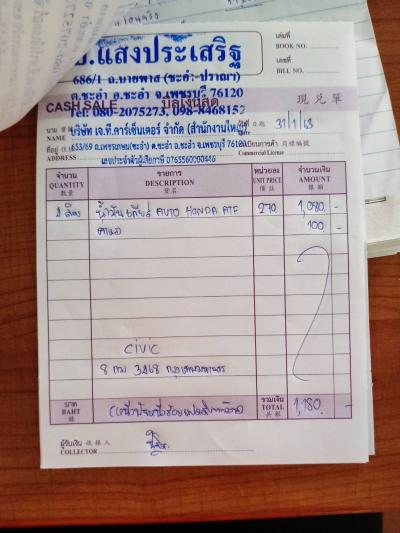 แสงประเสริฐ
เล่มที่
BOOK NO.
686/1 ถ.บายพาส (ชะอำ-ปราณฯ)
เลขที่
ต.ชะอำ อ.ชะอำ จ.เพชรบุรี 76120
BILL NO.
Tel: 080-2075273, 098-8468152
CASH SALE บิลเงินสด 現兑單
นาม
NAME
บริษัท เจ.ที.คาร์เซ็นเตอร์ จำกัด (สำนักงานใหญ่)
วันที่ 日期 31/1/63
ที่อยู่
ADDRESS
653/69 ถ.เพชรเกษม(ชะอำ) ต.ชะอำ อ.ชะอำ จ.เพชรบุรี 76120
ทะเบียนการค้า 商標編號
Commercial License
เลขประจำตัวผู้เสียภาษี
จำนวน รายการ หน่วยละ จำนวนเงิน
QUANTITY DESCRIPTION UNIT PRICE AMOUNT
數量 貨名 價註 銀額
4 ลิตร น้ำมันเกียร์ AUTO HONDA ATF 270 1,080 -
100 -
CIVIC
8 กฌ 3468 กรุงเทพมหานคร
บาท รวมเงิน
BAHT (หนึ่งพันหนึ่งร้อยแปดสิบบาทถ้วน) TOTAL 1,180 -
銖 共銀
ผู้รับเงิน 收銀人
COLLECTOR